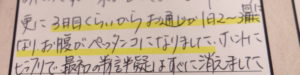 更に3日目くらいからお通じが1日2〜3回に
なりお腹がペッタンコになりました。ホントに
ビックリで最初の半信半疑はすぐに消えました